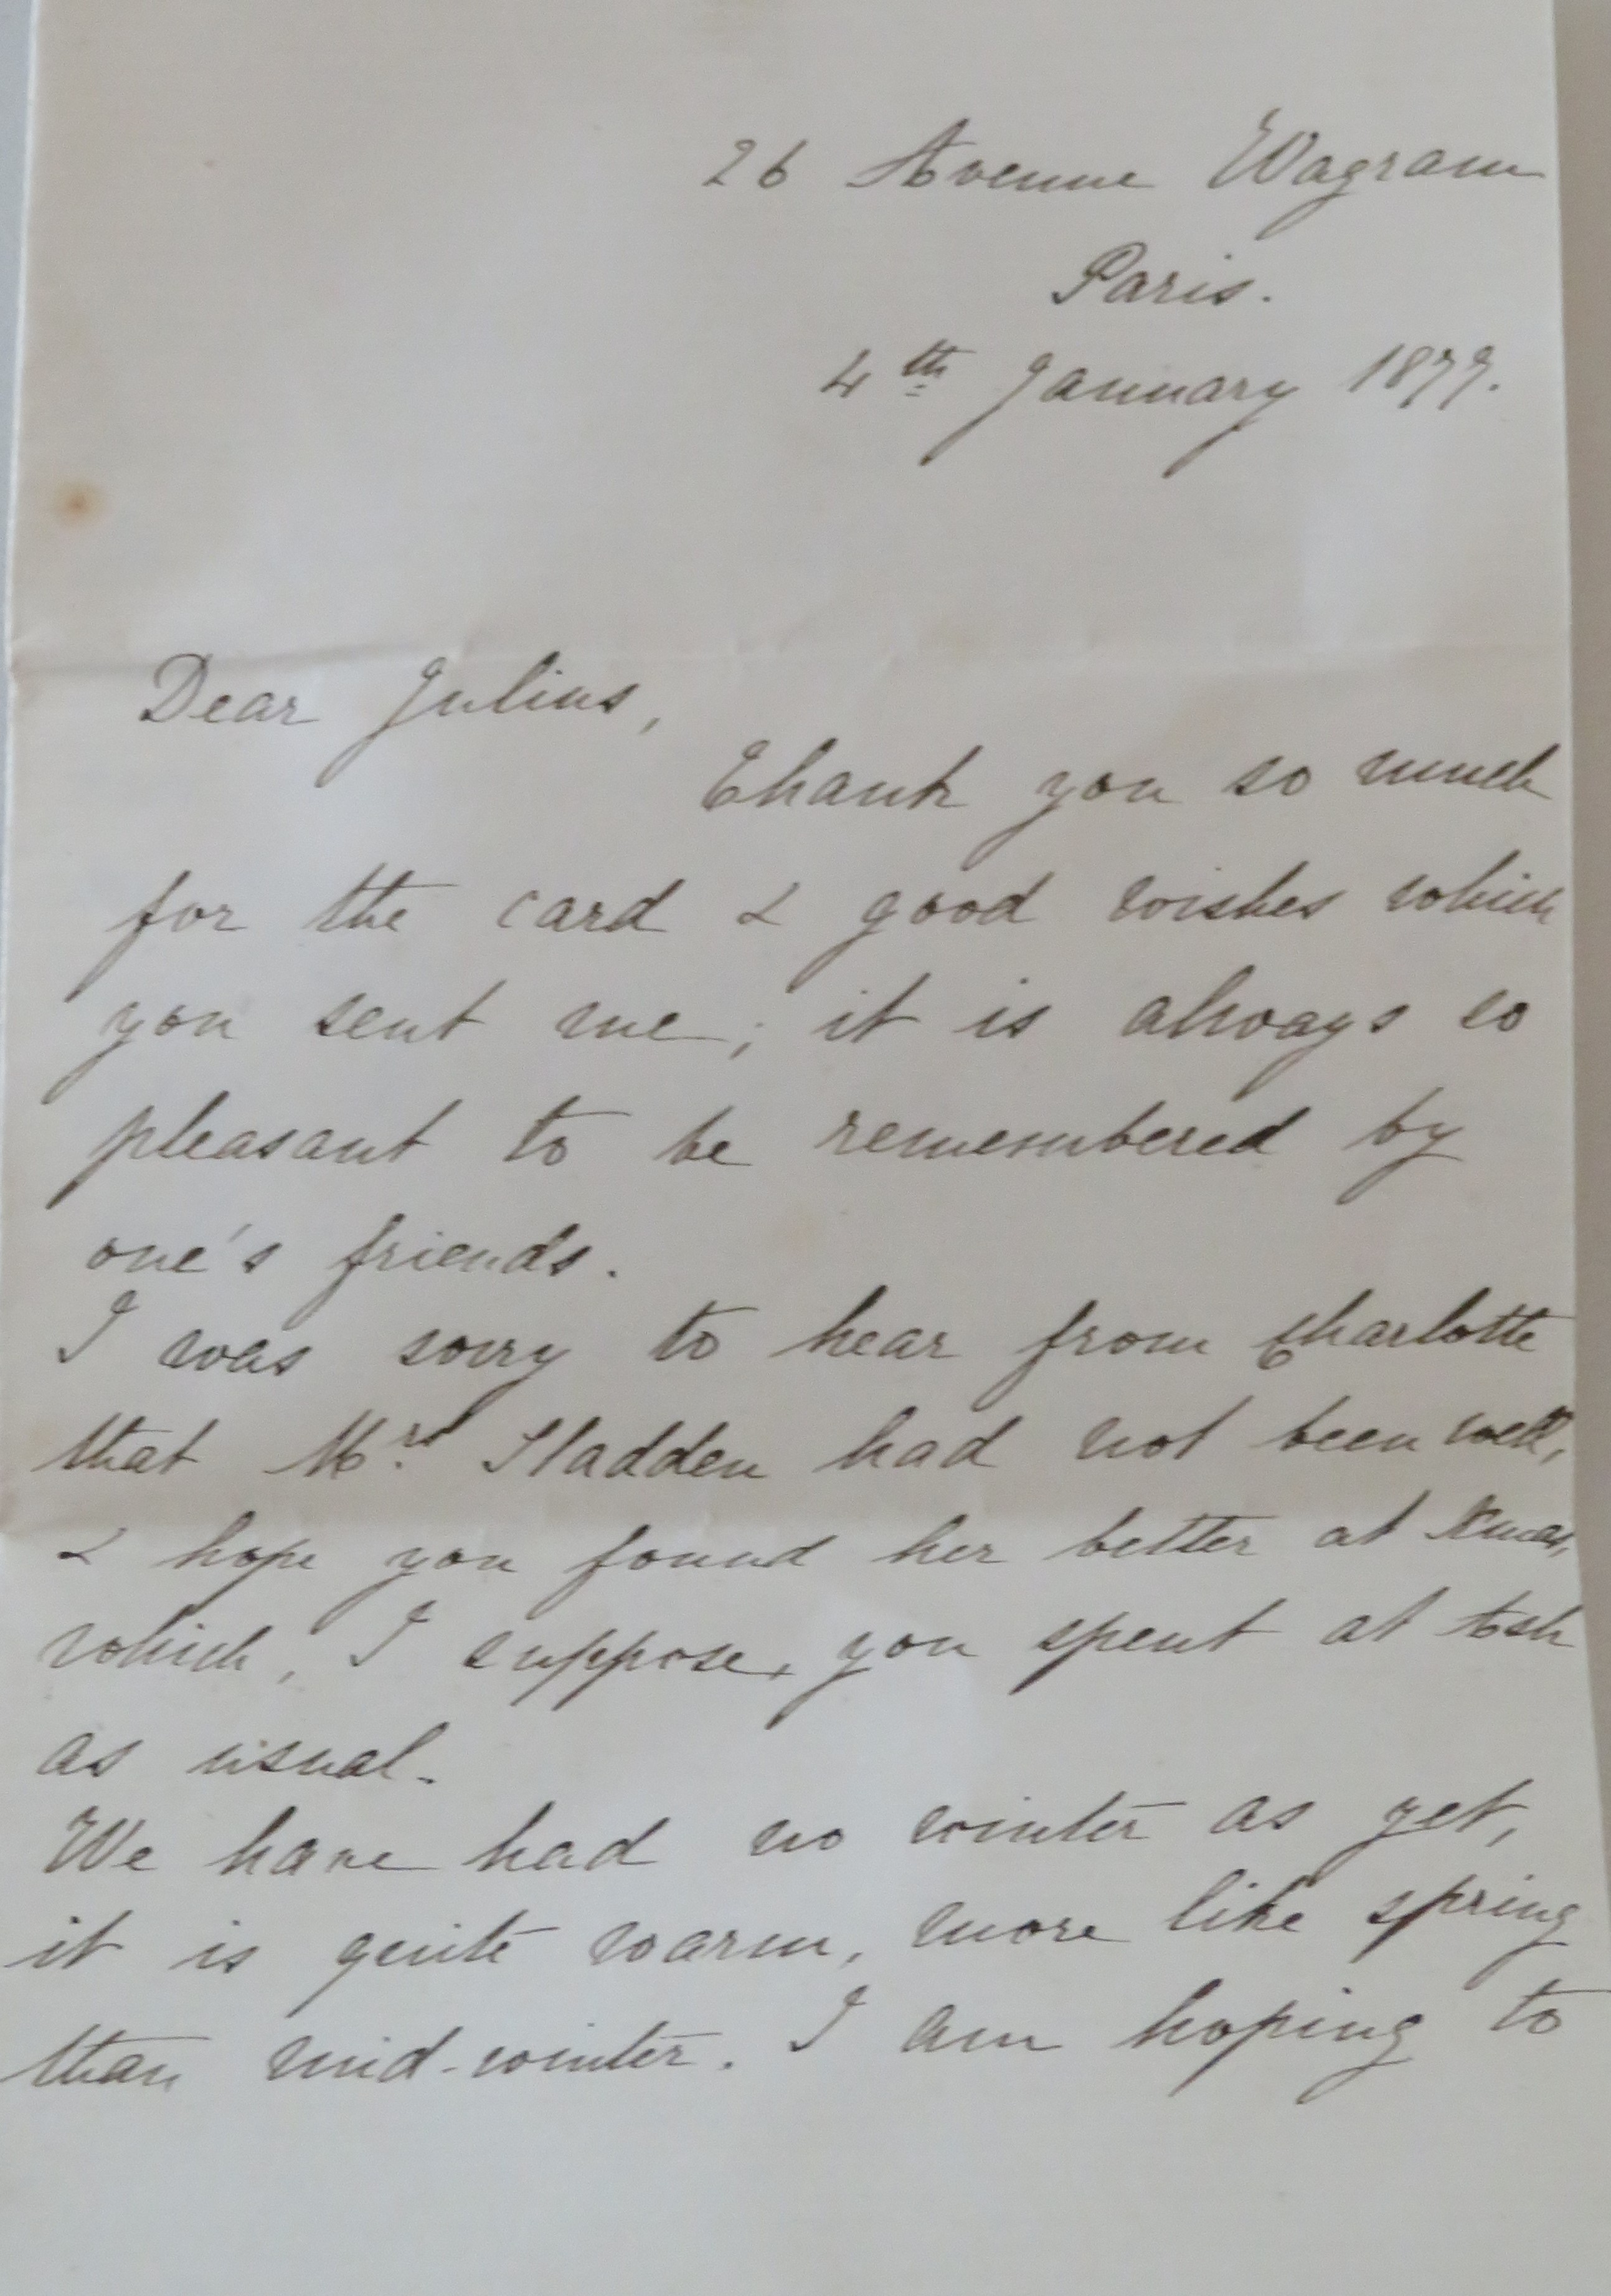 26 Avenue Wagram
Paris.
4th January 1877.
Dear Julius,
Thank you so much
for the card & good wishes which
you sent me; it is always so
pleasant to be remembered by
one's friends.
I was sorry to hear from Charlotte
that Mrs Sladden had not been well,
& hope you found her better at Xmas,
which, I suppose, you spent at Ash
as usual.
We have had no winter as yet,
it is quite warm, more like spring
than mid-winter. I am hoping to